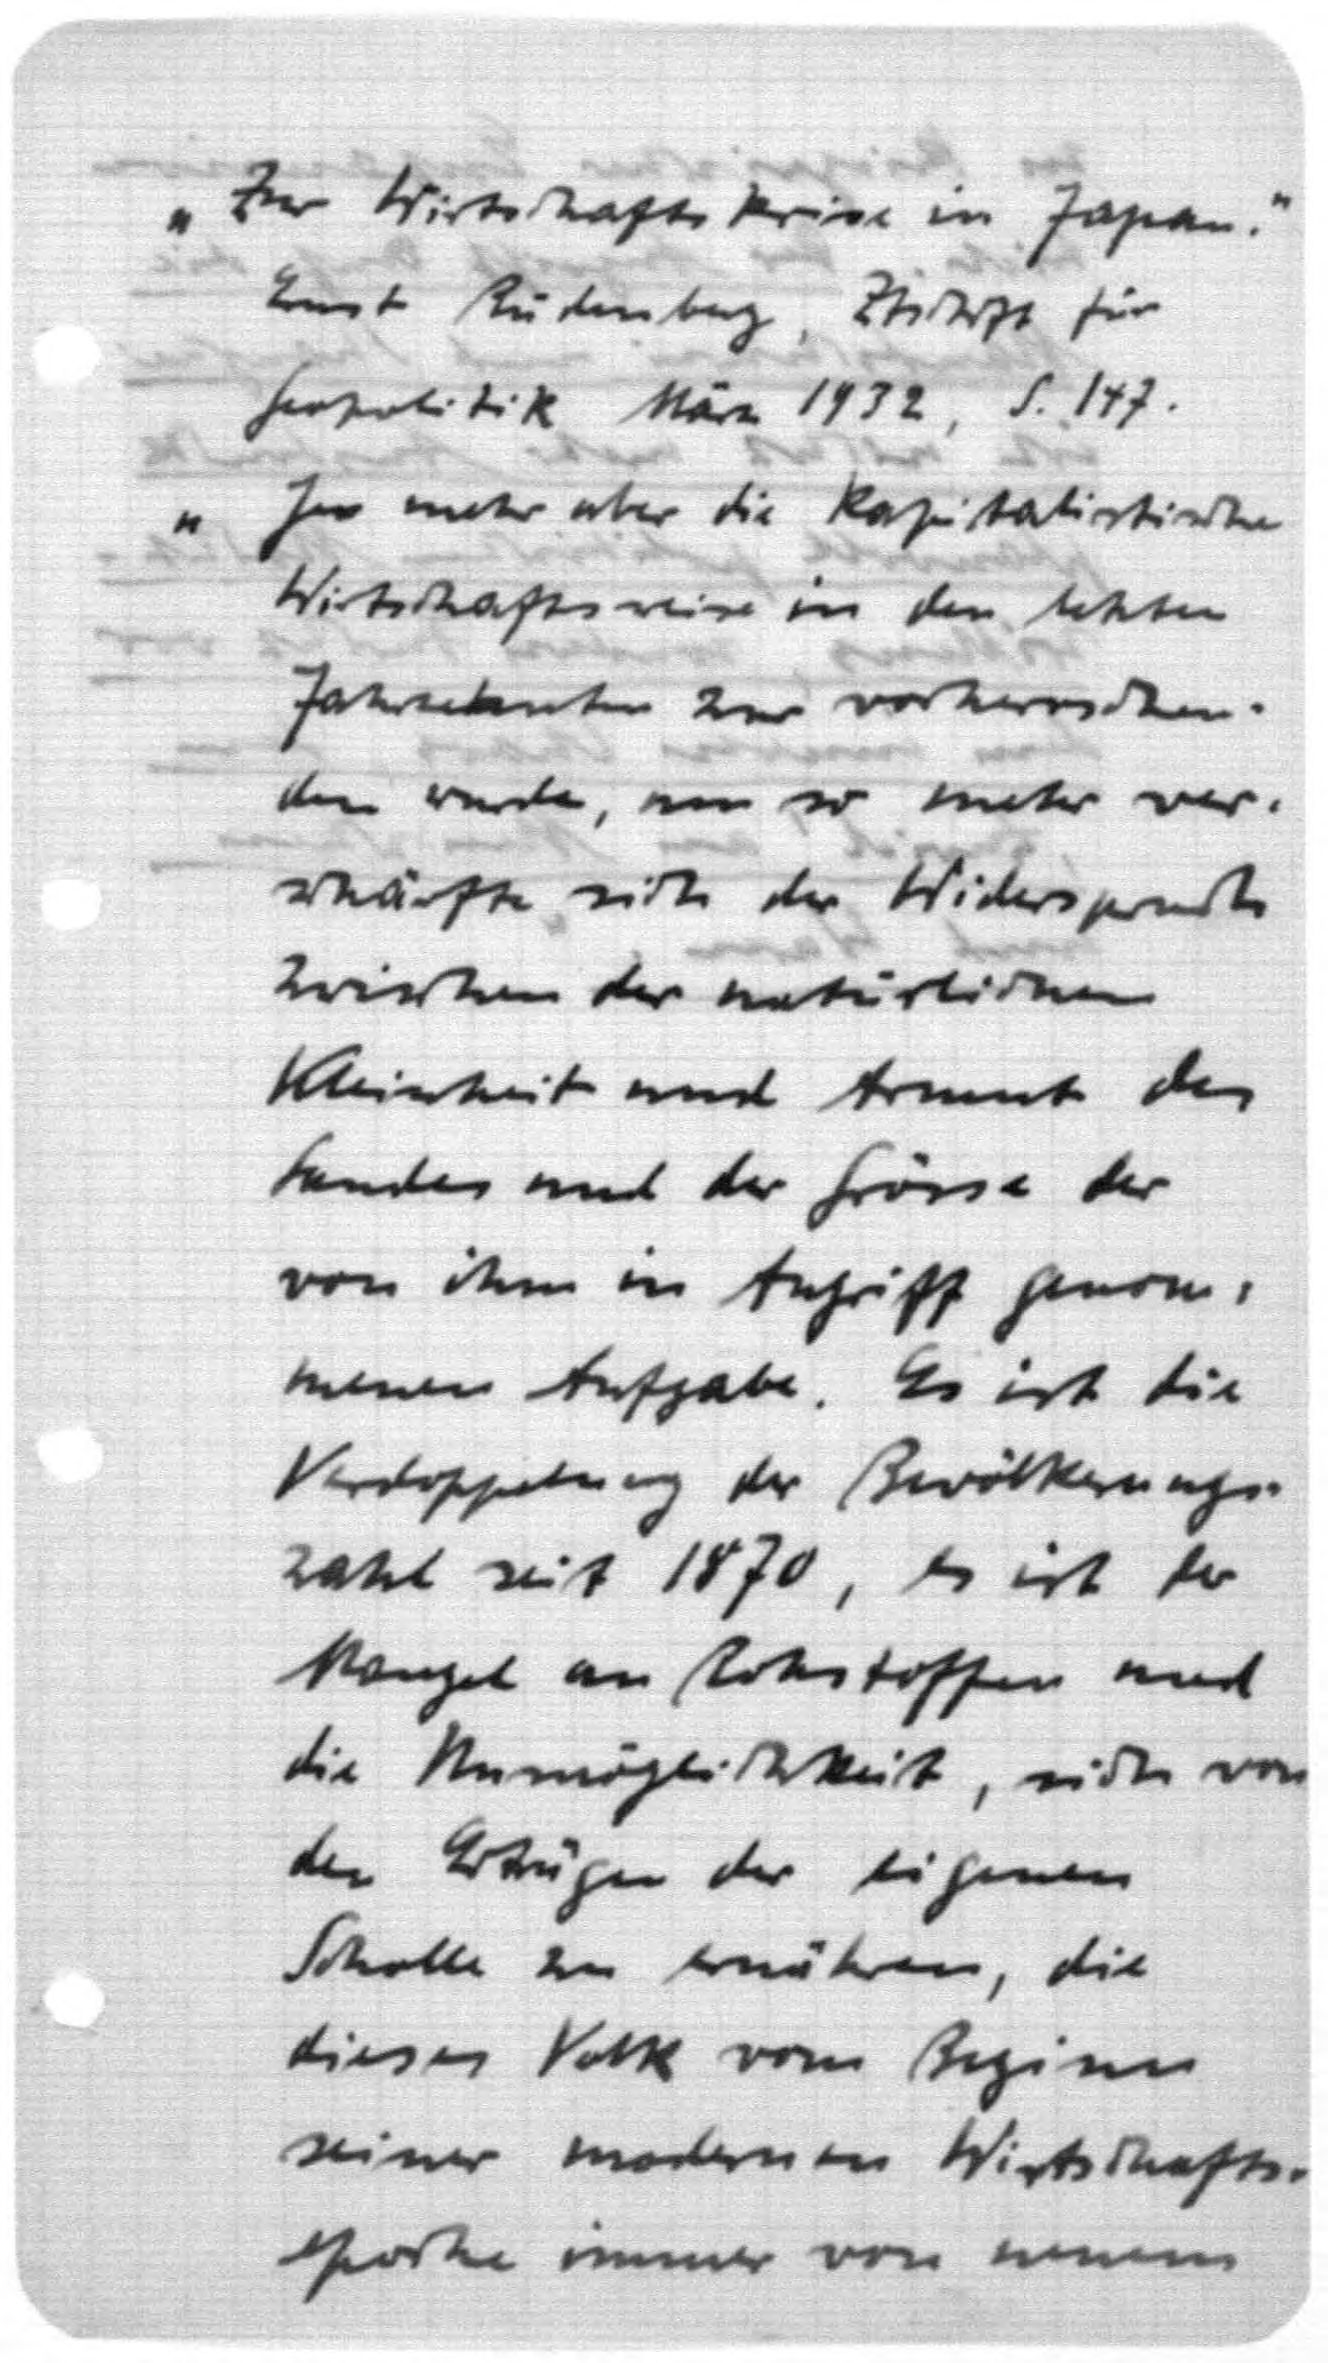 „Zur Wirtschaftskrise in Japan."
Ernst Rüdenberg, Ztschft für
Geopolitik März 1932, S. 147.
„Je mehr aber die kapitalistische
Wirtschaftsweise in den letzten
Jahrzehnten zur vorherrschen-
den wurde, um so mehr ver-
schärfte sich der Widerspruch
zwischen der natürlichen
Kleinheit und Armut des
Landes und der Grösse der
von ihm in Angriff genom-
menen Aufgabe. Es ist die
Verdoppelung der Bevölkerungs-
zahl seit 1870, es ist der
Mangel an Rohstoffen und
die Unmöglichkeit, sich von
den Erträgen der eigenen
Scholle zu ernähren, die
dieses Volk vom Beginn
seiner modernen Wirtschafts-
epoche immer von neuem